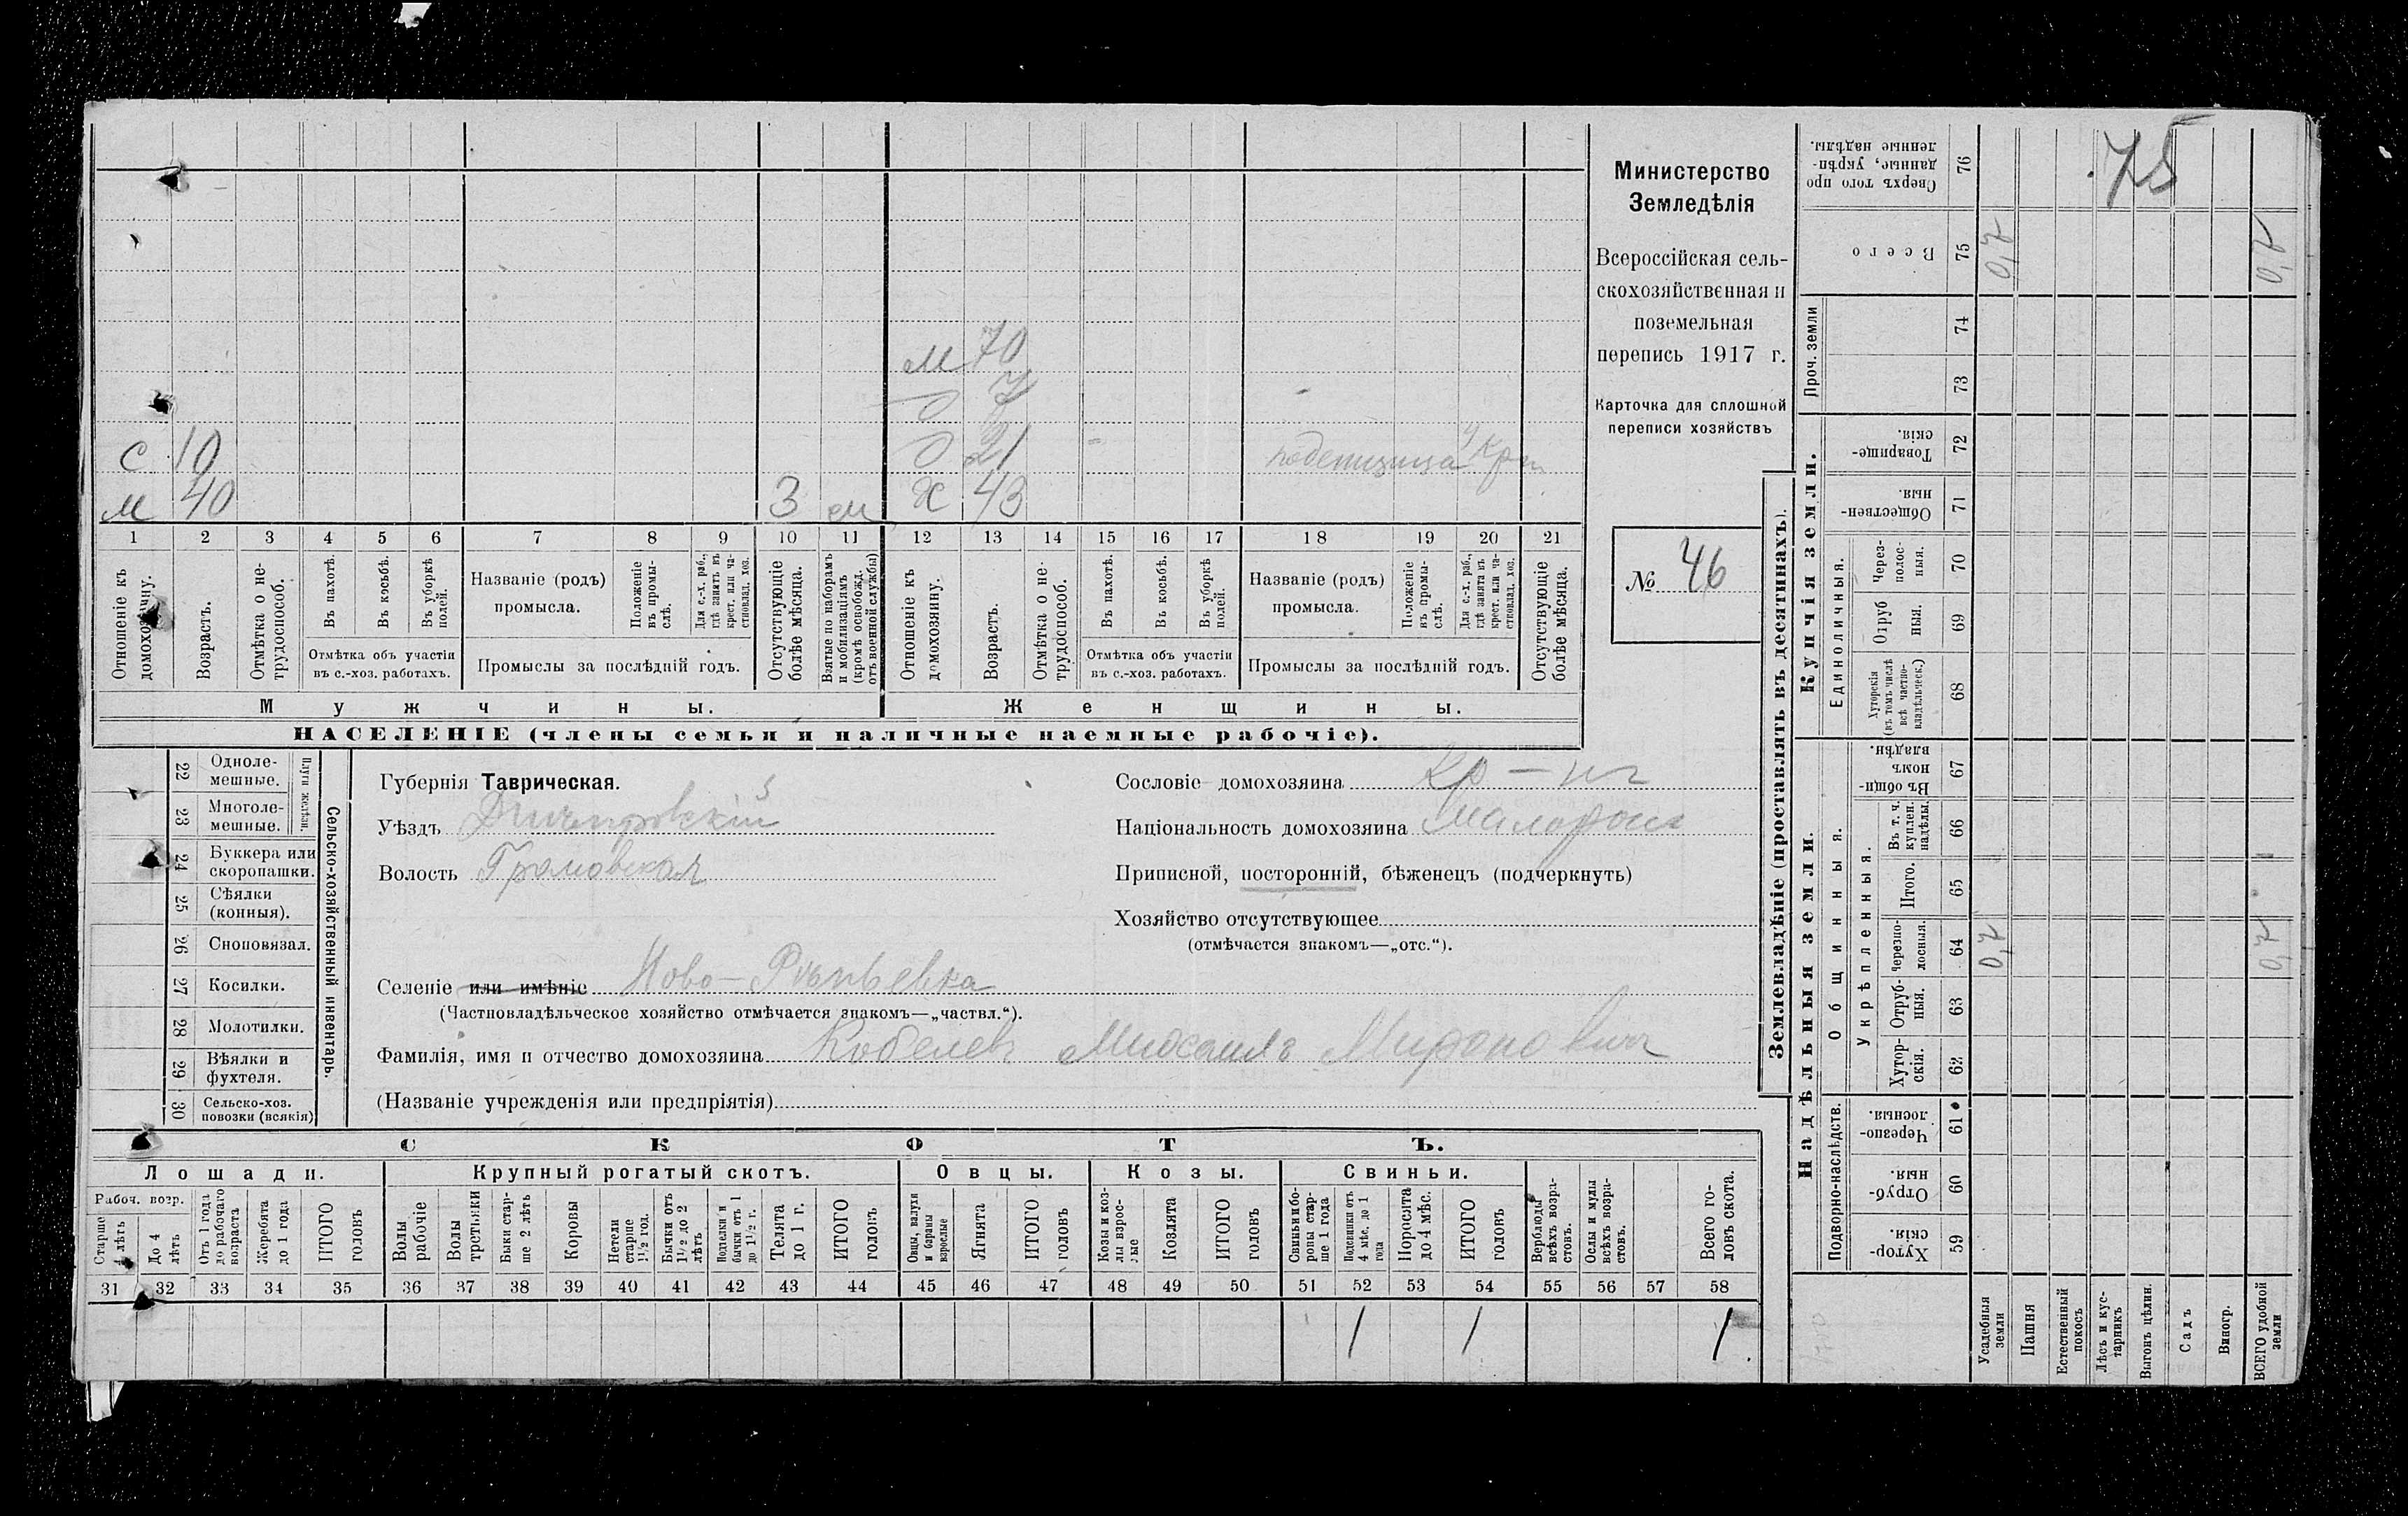 75
м 70
О 7
с 10
О 21
поденщица
м 40
3
м
Ж 43
1 2 3 4 5 6 7 8 9 10 11 12 13 14 15 16 17 18 19 20 21
Отношеніе къ домохозяину.
Возрастъ.
Отмѣтка о нетрудоспособ.
Въ пахотѣ.
Въ косьбѣ.
Въ уборкѣ полей.
Отмѣтка объ участіи
въ с.-хоз. работахъ.
Названіе (родъ)
промысла.
Положеніе въ промыслѣ.
Для с.-х. раб., гдѣ занятъ въ крест. или частновлад. хоз.
Промыслы за послѣдній годъ.
Отсутствующіе болѣе мѣсяца.
Взятые по наборамъ и мобилизаціямъ (кромѣ освобожд. отъ военной службы)
Отношеніе къ домохозяину.
Возрастъ.
Отмѣтка о нетрудоспособ.
Въ пахотѣ.
Въ косьбѣ.
Въ уборкѣ полей.
Отмѣтка объ участіи
въ с.-хоз. работахъ.
Названіе (родъ)
промысла.
Положеніе въ промыслѣ.
Для с.-х. раб., гдѣ занята въ крест. или частновлад. хоз.
Промыслы за послѣдній годъ.
Отсутствующіе болѣе мѣсяца.
Мужчины.
Женщины.
НАСЕЛЕНІЕ (члены семьи и наличные наемные рабочіе).
Министерство
Земледѣлія
Всероссійская сель-
скохозяйственная и
поземельная
перепись 1917 г.
Карточка для сплошной
переписи хозяйствъ
№ 46
22 Одноле-
мешные.
23 Многоле-
мешные.
Плуги желѣзн.
24 Буккера или
скоропашки.
25 Сѣялки
(конныя).
26 Сноповязал.
27 Косилки.
28 Молотилки.
29 Вѣялки и
фухтеля.
30 Сельско-хоз.
повозки (всякія)
Сельско-хозяйственный инвентарь.
Губернія Таврическая.
Уѣздъ Днѣпровскій
Волость Громовская
Селеніе или имѣніе Ново-
(Частновладѣльческое хозяйство отмѣчается знакомъ—„частвл.“).
Фамилія, имя и отчество домохозяина Кобелев Михаилъ Миронович
(Названіе учрежденія или предпріятія)
Сословіе домохозяина Кр-нъ
Національность домохозяина Малоросс
Приписной, посторонній, бѣженецъ (подчеркнуть)
Хозяйство отсутствующее
(отмѣчается знакомъ—„отс.“).
СКОТЪ.
Лошади.
Крупный рогатый скотъ.
Овцы.
Козы.
Свиньи.
Рабоч. возр.
Старше 4 лѣтъ
До 4 лѣтъ
Отъ 1 года до рабочаго возраста
Жеребята до 1 года
ИТОГО головъ
Волы рабочіе
Волы третьяки
Быки старше 2 лѣтъ
Коровы
Нетели старше 1½ год.
Бычки отъ 1½ до 2 лѣтъ
Подтелки и бычки отъ 1 до 1½ г.
Телята до 1 г.
ИТОГО головъ
Овцы, валухи и бараны взрослые
Ягнята
ИТОГО головъ
Козы и козлы взрослые
Козлята
ИТОГО головъ
Свиньи и боровы старше 1 года
Подсвинки отъ 4 мѣс. до 1 года
Поросята до 4 мѣс.
ИТОГО головъ
Верблюды всѣхъ возрастовъ.
Ослы и мулы всѣхъ возрастовъ.
Всего головъ скота.
31 32 33 34 35 36 37 38 39 40 41 42 43 44 45 46 47 48 49 50 51 52 53 54 55 56 57 58
1 1 1
Землевладѣніе (проставлять въ десятинахъ).
Надѣльныя земли.
Купчія земли.
Проч. земли
Подворно-наслѣдств.
Общинныя.
Укрѣпленныя.
Единоличныя.
Хуторскія. 59
Отрубныя. 60
Черезполосныя. 61
Хуторскія. 62
Отрубныя. 63
Черезполосныя. 64 0,7 0,7
Итого. 65
Въ т. ч. куплен. надѣлы. 66
Въ общинномъ владѣн. 67
Хуторскія (въ томъ числѣ всѣ частновладѣльческ.) 68
Отрубныя. 69
Черезполосныя. 70
Общественныя. 71
Товарищескія. 72
73
74
Всего 75 0,7 0,7
Сверхъ того проданные, укрѣпленные надѣлы. 76
Усадебныя земли
Пашня
Естественный покосъ
Лѣсъ и кустарникъ
Выгонъ цѣлин.
Садъ
Виногр.
ВСЕГО удобной земли